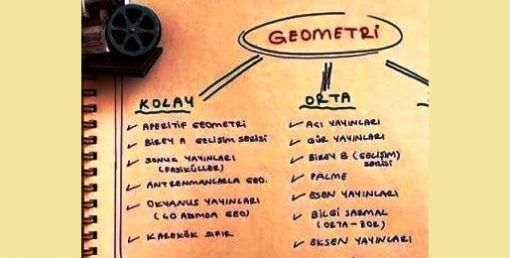 GEOMETRİ
KOLAY
✓ APERİTİF GEOMETRİ
✓ BİREY A GELİŞİM SERİSİ
✓ SONUÇ YAYINLARI
(FASİKÜLLER)
✓ ANTRENMANLARLA GEO.
✓ OKYANUS YAYINLARI
(40 ADIMDA GEO)
✓ KAREKÖK SIFIR
ORTA
✓ AÇI YAYINLARI
✓ GÜR YAYINLARI
✓ BİREY B (GELİŞİM)
SERİSİ
✓ PALME
✓ ESEN YAYINLARI
✓ BİLGİ SARMAL
(ORTA-ZOR)
✓ EKSEN YAYINLARI